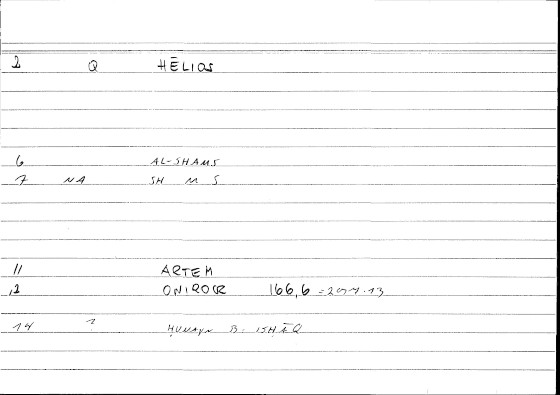 2 Q HĒLIOS
6 AL-SHAMS
7 NA SH M S
11 ARTEM
12 ONIROCR 166,6
14 ? ḤUNAYN B. ISḤĀQ